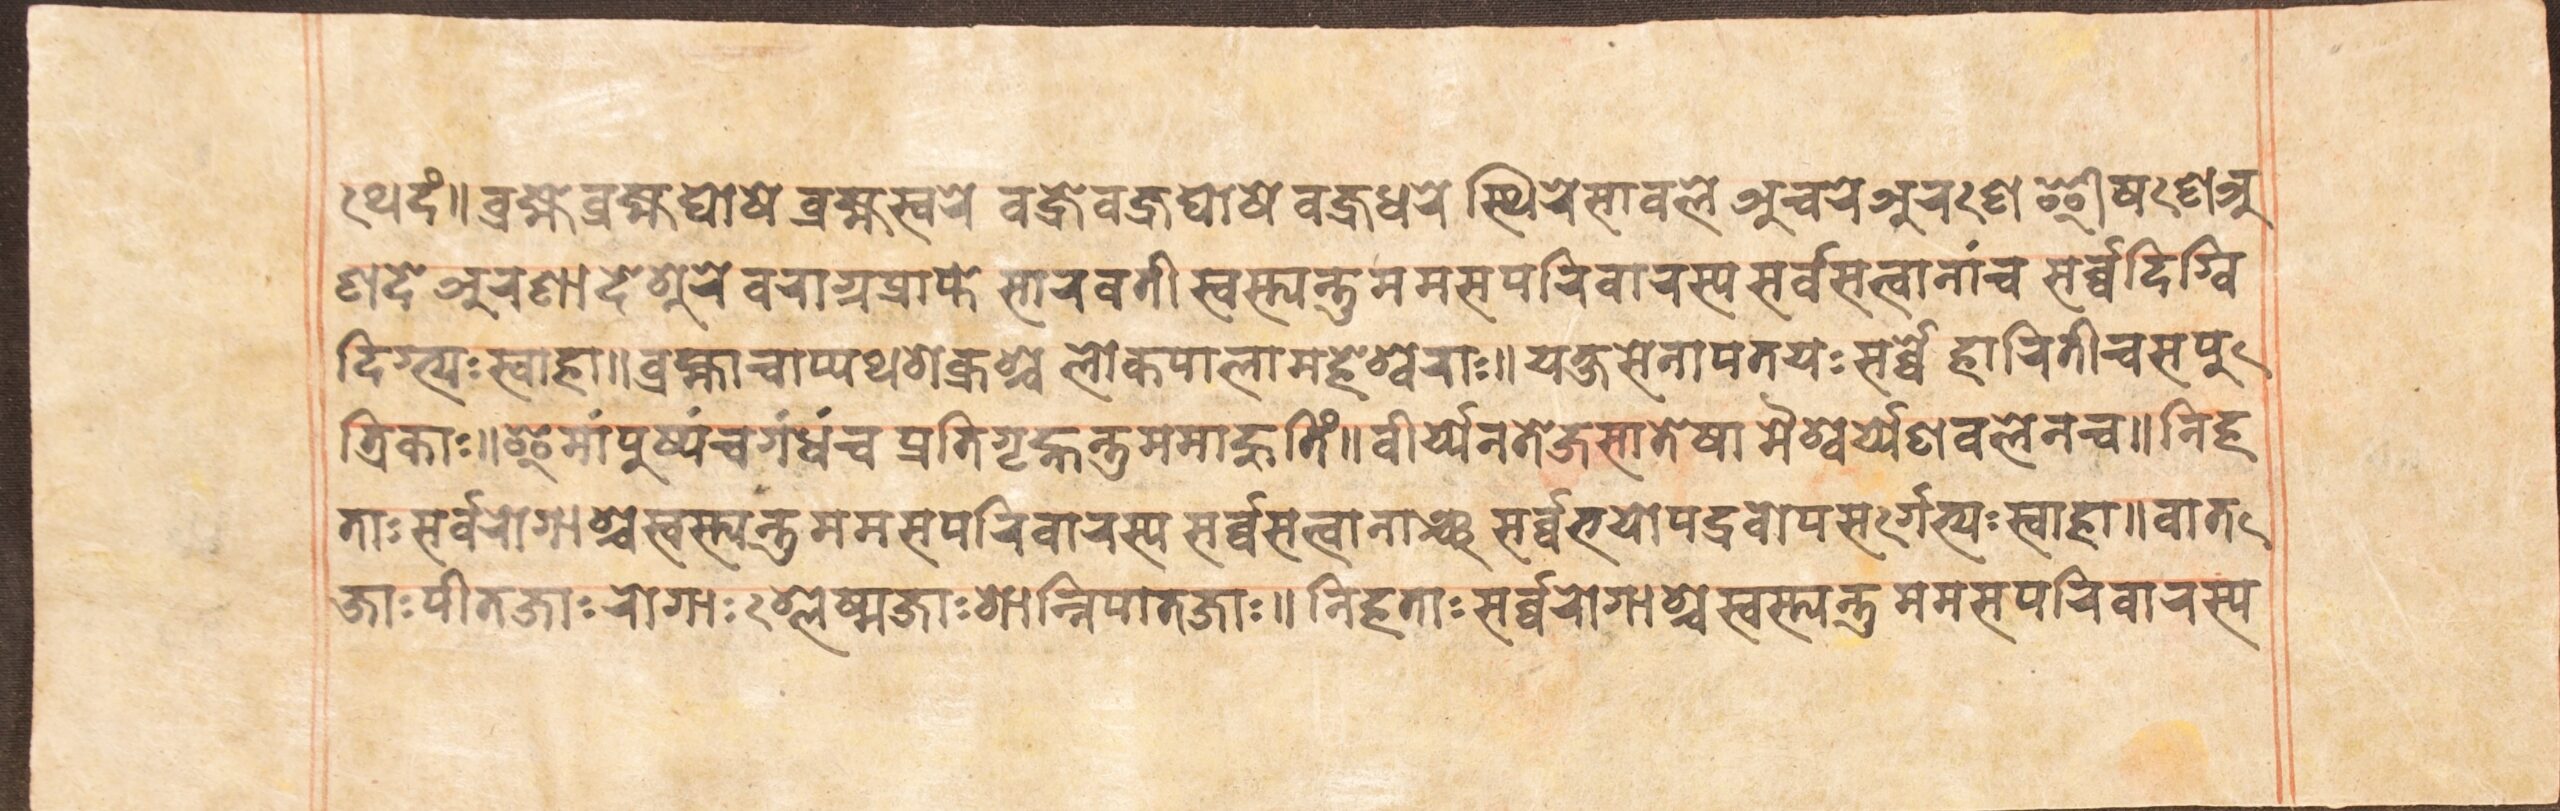 थेदं॥ ब्रह्मे ब्रह्मघोषे ब्रह्मस्वरे वज्रे वज्रघोषे वज्रधरे स्थिरे सावले अचरे अरणे इषणे अ
णदे अरणादे शुरे वराग्रप्राप्ते सारवती स्वस्त्यन्तु मम सपरिवारस्य सर्वसत्वानांच सर्व्वदिग्वि
दिग्भ्यः स्वाहा॥ ब्रह्माचाप्यथ शक्रश्च लोकपाला महेश्वराः॥ यक्षसेनापतयः सर्व्वे हारितीच सपु
त्रिकाः॥ इमां पुष्पंच गंधंच प्रतिगृह्नन्तु ममाहुतिं॥ वीर्य्येन तेजसा तेषामैश्वर्य्येण वलेनच॥ निह
ताः सर्वरोगाश्च स्वस्त्यन्तु मम सपरिवारस्य सर्व्वसत्वानाञ्च सर्व्वभयोपद्रवोपसर्गेभ्यः स्वाहा॥ वात
जाः पीतजाः रोगाः श्लेष्मजाः शान्निपातजाः॥ निहताः सर्व्वरोगाश्च स्वस्त्यन्तु मम सपरिवारस्य